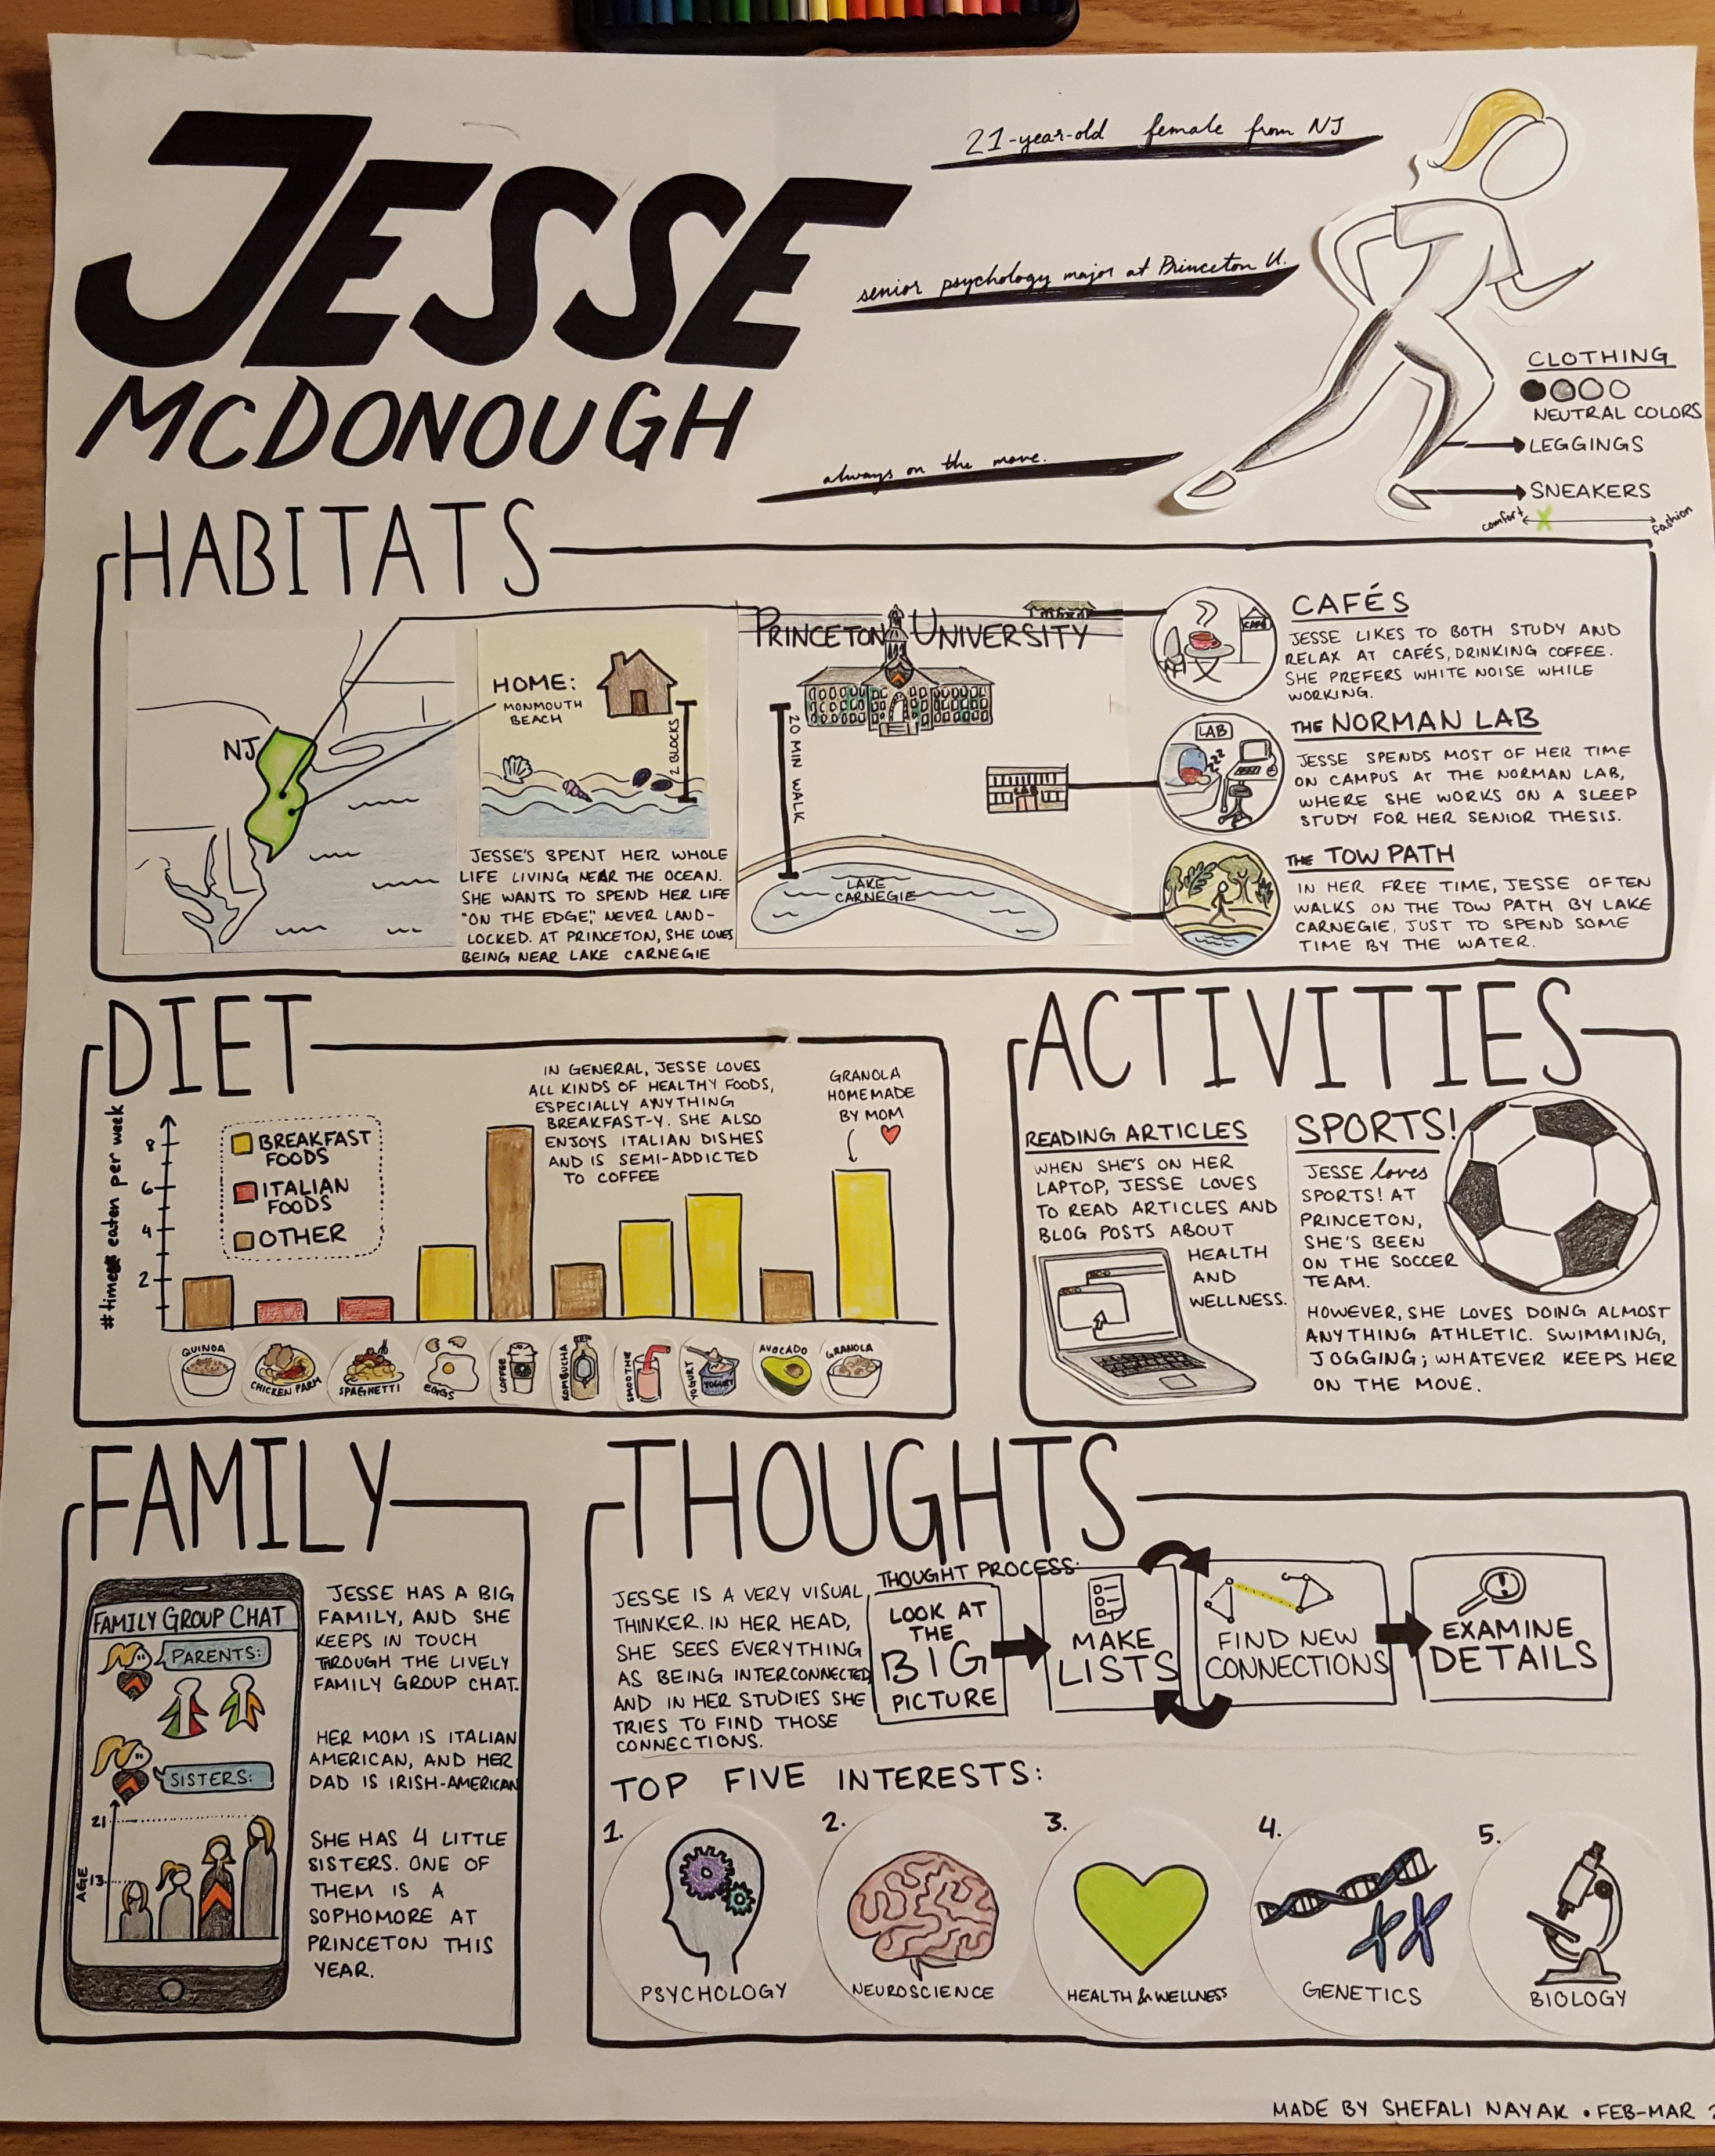 JESSE
MCDONOUGH
21-year-old female from NJ
senior psychology major at Princeton U.
always on the move.
CLOTHING
NEUTRAL COLORS
LEGGINGS
SNEAKERS
comfort
fashion
HABITATS
NJ
HOME:
MONMOUTH
BEACH
2 BLOCKS
JESSE'S SPENT HER WHOLE
LIFE LIVING NEAR THE OCEAN.
SHE WANTS TO SPEND HER LIFE
"ON THE EDGE," NEVER LAND-
LOCKED. AT PRINCETON, SHE LOVES
BEING NEAR LAKE CARNEGIE
PRINCETON UNIVERSITY
20 MIN WALK
LAB
LAKE
CARNEGIE
CAFÉ
CAFÉS
JESSE LIKES TO BOTH STUDY AND
RELAX AT CAFÉS, DRINKING COFFEE.
SHE PREFERS WHITE NOISE WHILE
WORKING.
LAB
ZZZ
THE NORMAN LAB
JESSE SPENDS MOST OF HER TIME
ON CAMPUS AT THE NORMAN LAB,
WHERE SHE WORKS ON A SLEEP
STUDY FOR HER SENIOR THESIS.
THE TOW PATH
IN HER FREE TIME, JESSE OFTEN
WALKS ON THE TOW PATH BY LAKE
CARNEGIE, JUST TO SPEND SOME
TIME BY THE WATER.
DIET
# times eaten per week
8
6
4
2
BREAKFAST
FOODS
ITALIAN
FOODS
OTHER
IN GENERAL, JESSE LOVES
ALL KINDS OF HEALTHY FOODS,
ESPECIALLY ANYTHING
BREAKFAST-Y. SHE ALSO
ENJOYS ITALIAN DISHES
AND IS SEMI-ADDICTED
TO COFFEE
GRANOLA
HOMEMADE
BY MOM
QUINOA
CHICKEN PARM
SPAGHETTI
EGGS
COFFEE
KOMBUCHA
SMOOTHIE
YOGURT
YOGURT
AVOCADO
GRANOLA
ACTIVITIES
READING ARTICLES
WHEN SHE'S ON HER
LAPTOP, JESSE LOVES
TO READ ARTICLES AND
BLOG POSTS ABOUT
HEALTH
AND
WELLNESS.
SPORTS!
JESSE loves
SPORTS! AT
PRINCETON,
SHE'S BEEN
ON THE SOCCER
TEAM.
HOWEVER, SHE LOVES DOING ALMOST
ANYTHING ATHLETIC. SWIMMING,
JOGGING; WHATEVER KEEPS HER
ON THE MOVE.
FAMILY
FAMILY GROUP CHAT
PARENTS:
SISTERS:
21
13
AGE
JESSE HAS A BIG
FAMILY, AND SHE
KEEPS IN TOUCH
THROUGH THE LIVELY
FAMILY GROUP CHAT.
HER MOM IS ITALIAN
AMERICAN, AND HER
DAD IS IRISH-AMERICAN
SHE HAS 4 LITTLE
SISTERS. ONE OF
THEM IS A
SOPHOMORE AT
PRINCETON THIS
YEAR.
THOUGHTS
JESSE IS A VERY VISUAL
THINKER. IN HER HEAD,
SHE SEES EVERYTHING
AS BEING INTERCONNECTED,
AND IN HER STUDIES SHE
TRIES TO FIND THOSE
CONNECTIONS.
THOUGHT PROCESS:
LOOK AT
THE
BIG
PICTURE
MAKE
LISTS
FIND NEW
CONNECTIONS
EXAMINE
DETAILS
TOP FIVE INTERESTS:
1.
PSYCHOLOGY
2.
NEUROSCIENCE
3.
HEALTH & WELLNESS
4.
GENETICS
5.
BIOLOGY
MADE BY SHEFALI NAYAK • FEB-MAR